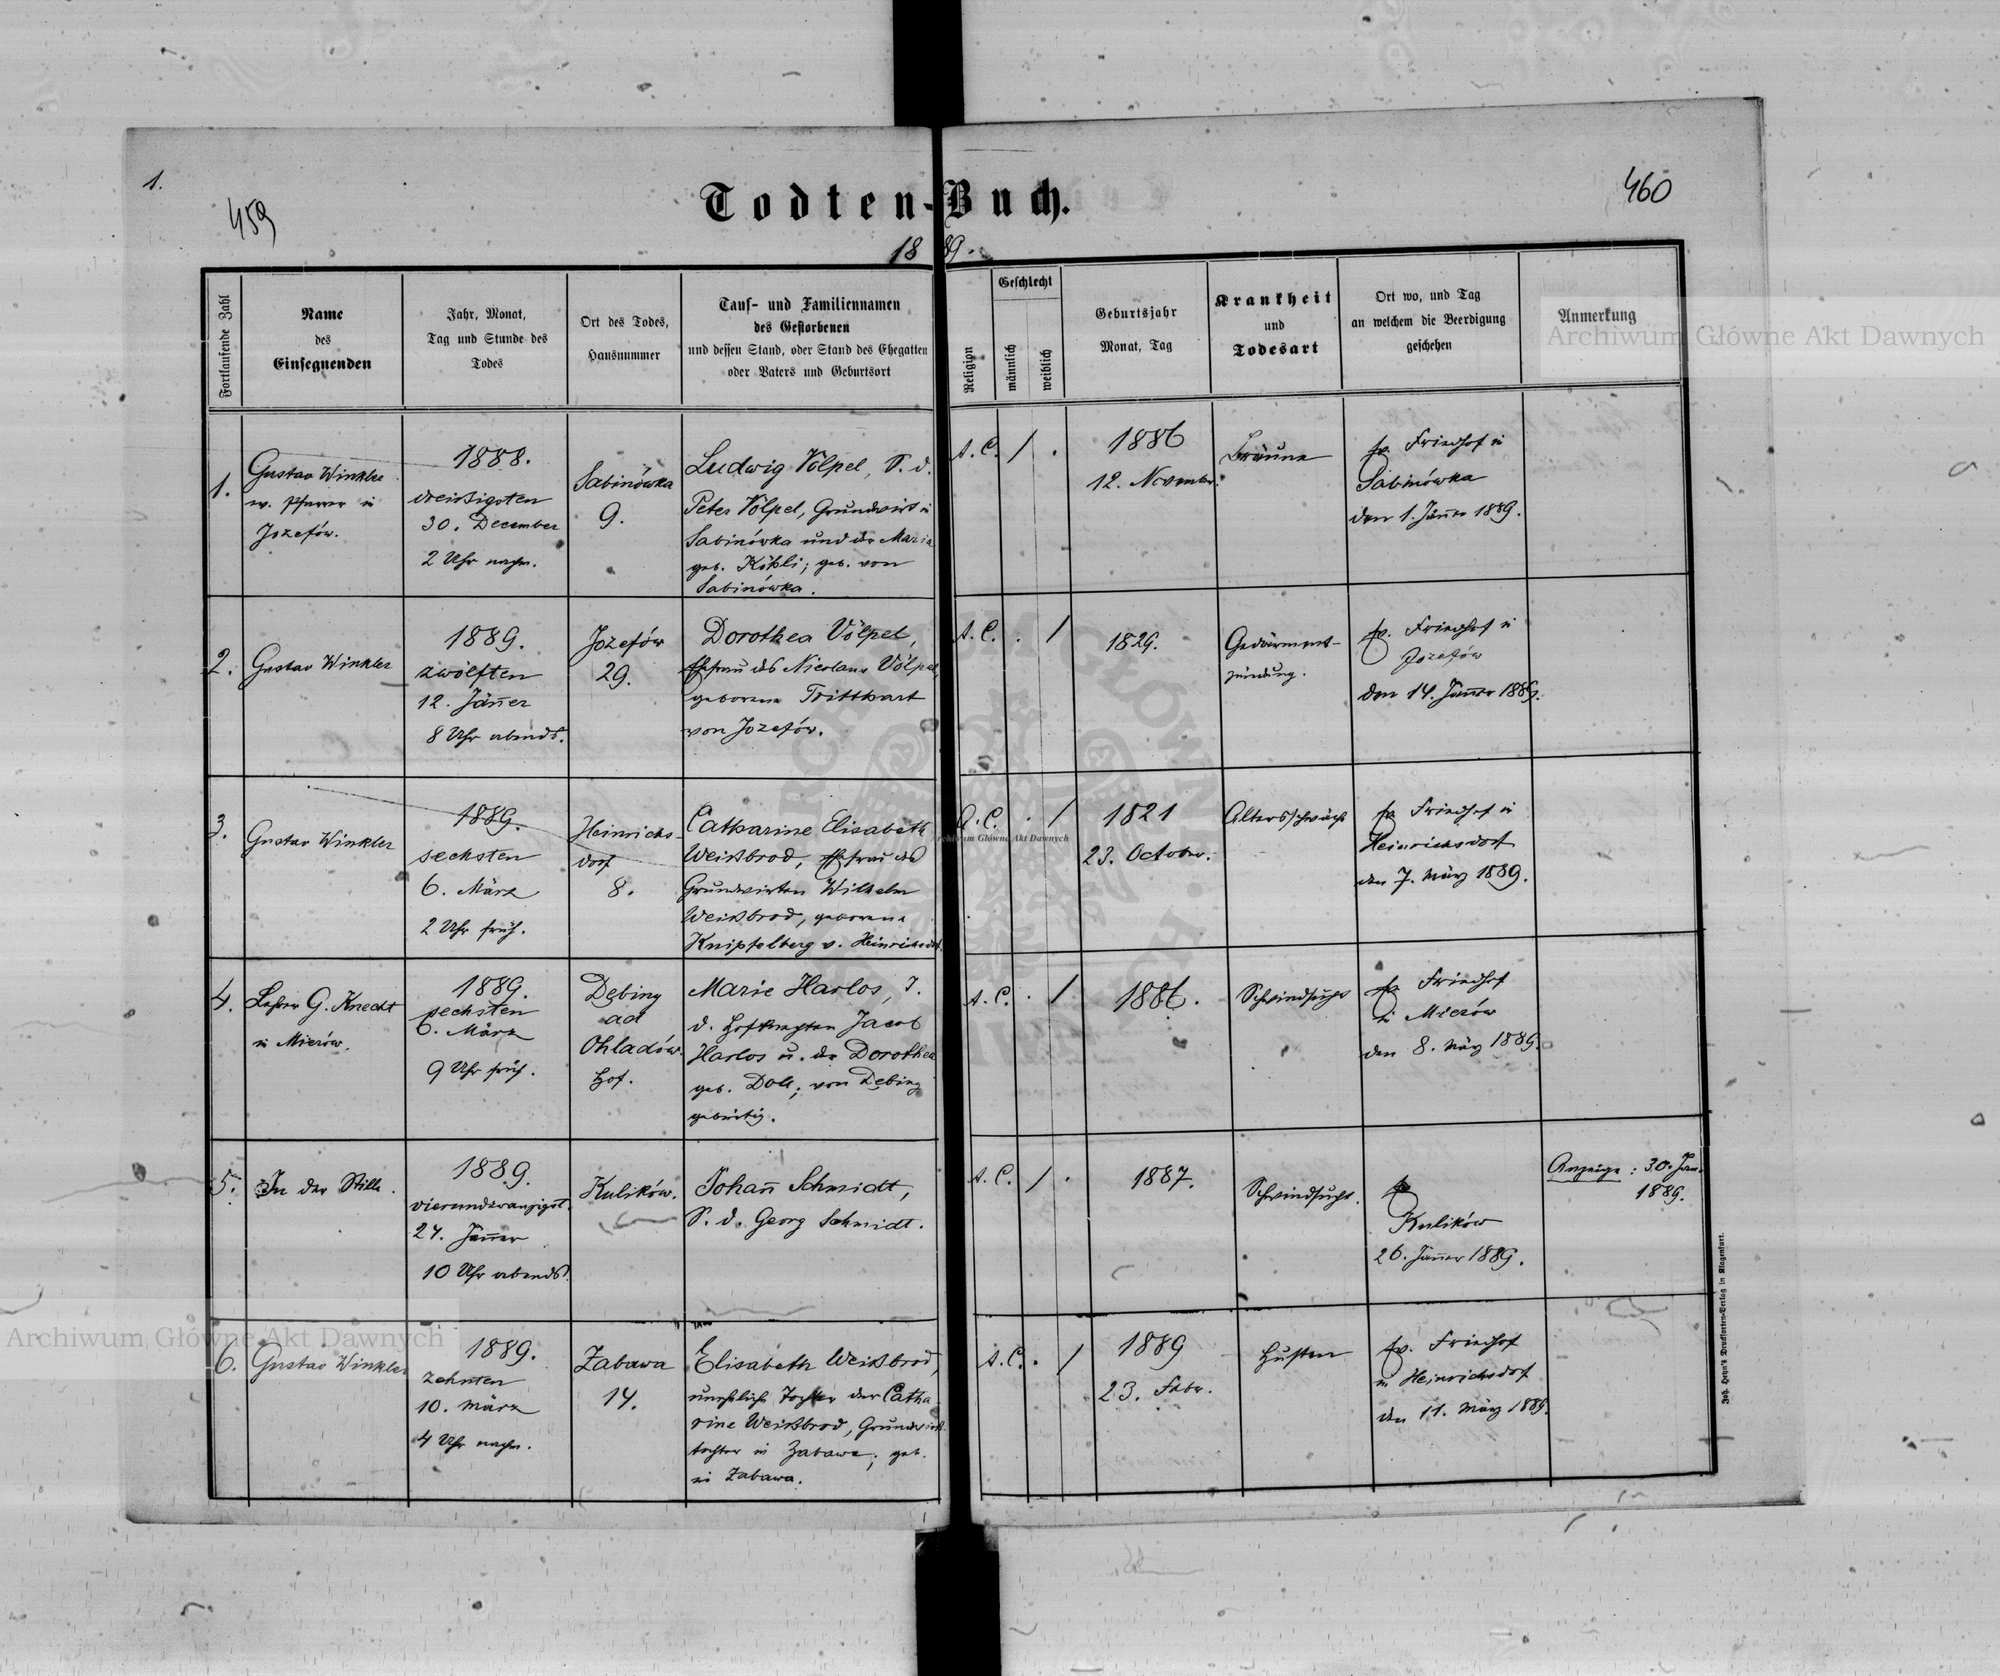 1.
459
460
Todten-Buch.
1889.
Fortlaufende Zahl
Name
des
Einsegnenden
Jahr, Monat,
Tag und Stunde des
Todes
Ort des Todes,
Hausnummer
Tauf- und Familiennamen
des Gestorbenen
und dessen Stand, oder Stand des Ehegatten
oder Vaters und Geburtsort
Religion
Geschlecht
männlich
weiblich
Geburtsjahr
Monat, Tag
Krankheit
und
Todesart
Ort wo, und Tag
an welchem die Beerdigung
geschehen
Anmerkung
Archiwum Główne Akt Dawnych
1.
Gustav Winkler
ev. Pfarrer in
Jozefów.
1888.
dreißigsten
30. December
2 Uhr nachm.
Sabinówka
9.
Ludwig Völpel, S. d.
Peter Völpel, Grundwirt in
Sabinówka und der Maria
geb. Köhli; geb. von
Sabinówka.
A. C. / .
1886
12. November.
Bräune
ev. Friedhof in
Sabinówka
den 1. Jänner 1889.
2.
Gustav Winkler
1889.
zwölften
12. Jänner
8 Uhr abends.
Jozefów
29.
Dorothea Völpel,
Ehefrau des Nicolaus Völpel,
geborene Tritthart
von Jozefów.
A. C. . /
1829.
Gedärment-
zündung.
ev. Friedhof in
Jozefów
den 14. Jänner 1889.
3.
Gustav Winkler
1889.
sechsten
6. März
2 Uhr früh.
Heinrichs-
dorf
8.
Catharine Elisabeth
Weißbrod, Ehefrau des
Grundwirten Wilhelm
Weißbrod, geborene
Knipfelberg v. Heinrichsdorf.
A. C. . /
Archiwum Główne Akt Dawnych
1821
23. October.
Altersschwäche
ev. Friedhof in
Heinrichsdorf
den 7. März 1889.
4.
Lehrer G. Knecht
in Mierów.
1889.
sechsten
6. März
9 Uhr früh.
Dębiny
ad
Ohladów.
Hof.
Marie Harlos, T.
d. Hofknechten Jacob
Harlos u. der Dorothea
geb. Doll; von Dębiny
gebürtig.
A. C. . /
1886.
Schwindsucht
ev. Friedhof
in Mierów
den 8. März 1889.
5.
In der Stille.
1889.
vierundzwanzigst.
24. Jänner
10 Uhr abends.
Kulików.
Johann Schmidt,
S. d. Georg Schmidt.
A. C. / .
1887.
Schwindsucht.
Kulików
26. Jänner 1889.
Anzeige: 30. Jän.
1889.
6.
Gustav Winkler
1889.
zehnten
10. März
4 Uhr nachm.
Zabawa
14.
Elisabeth Weißbrod,
uneheliche Tochter der Catha-
rine Weißbrod, Grundwirts-
tochter in Zabawa; geb.
in Zabawa.
A. C. . /
1889
23. Febr.
Husten
ev. Friedhof
in Heinrichsdorf
den 11. März 1889.
Joh. Heyn's Drucksorten-Verlag in Klagenfurt.
Archiwum Główne Akt Dawnych